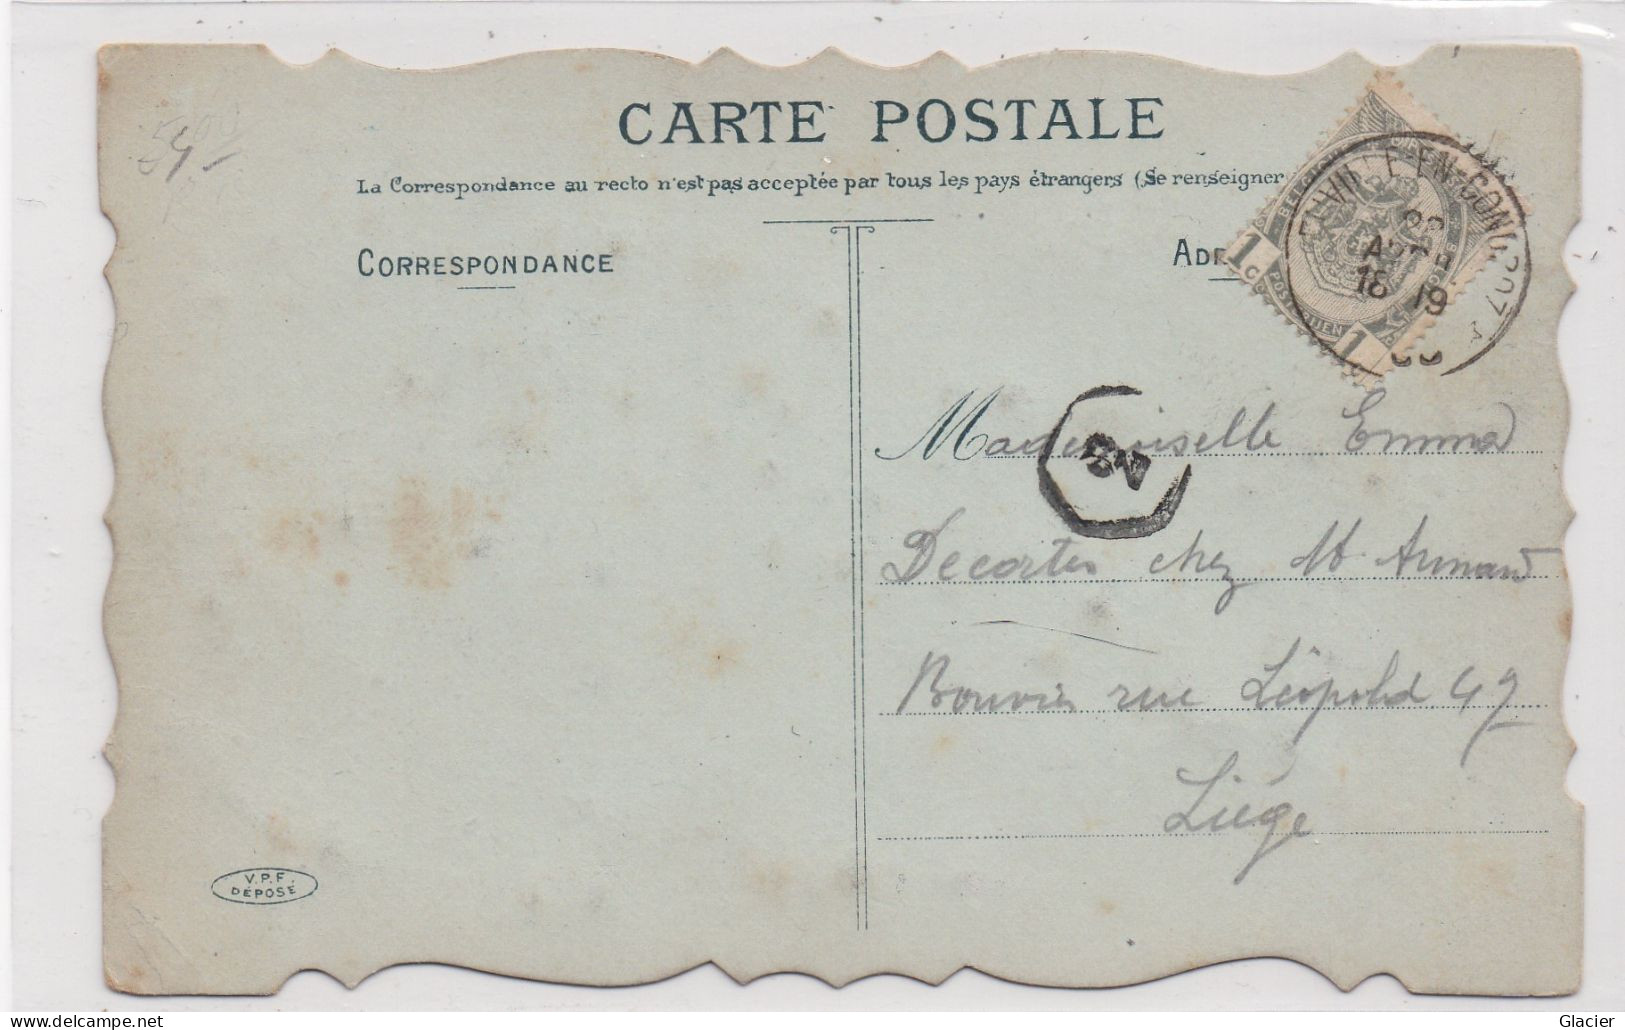 CARTE POSTALE
La Correspondance au recto n'est pas acceptée par tous les pays étrangers (Se renseigner
CORRESPONDANCE
1 c
POSTERIJEN
1
18 19
Mademoiselle Emma
Decortes chez M Armand
Bouvier rue Léopold 49
Liége
V.P.F.
DÉPOSÉ
Glacier